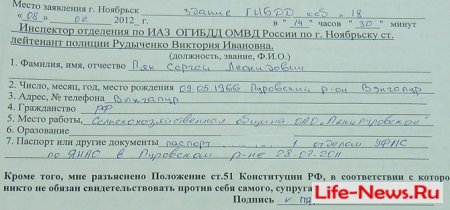 Место заявления г. Ноябрьск здание ГИБДД каб. 18
" 08 " 02 2012 г. в " 14 " часов " 30 " минут
Инспектор отделения по ИАЗ ОГИБДД ОМВД России по г. Ноябрьску ст.
лейтенант полиции Рудыченко Виктория Ивановна.
(должность, звание, Ф.И.О.)
1. Фамилия, имя, отчество Пяк Сергей Леонидович
2. Число, месяц, год, место рождения 09.05 1966 Пуровский р-он Вэнгапур
3. Адрес, № телефона Вэнгапур
4. Гражданство РФ
5. Место работы, Сельскохозяйственная община ОАО "Пяки Пуровское"
6. Оразование
7. Паспорт или другие документы паспорт 1 отделом УФМС
по ЯНАО в Пуровском р-не 28.07.2011
Кроме того, мне разъяснено Положение ст.51 Конституции РФ, в соответствии с которо
никто не обязан свидетельствовать против себя самого, супруга
Подпись
Life-News.Ru